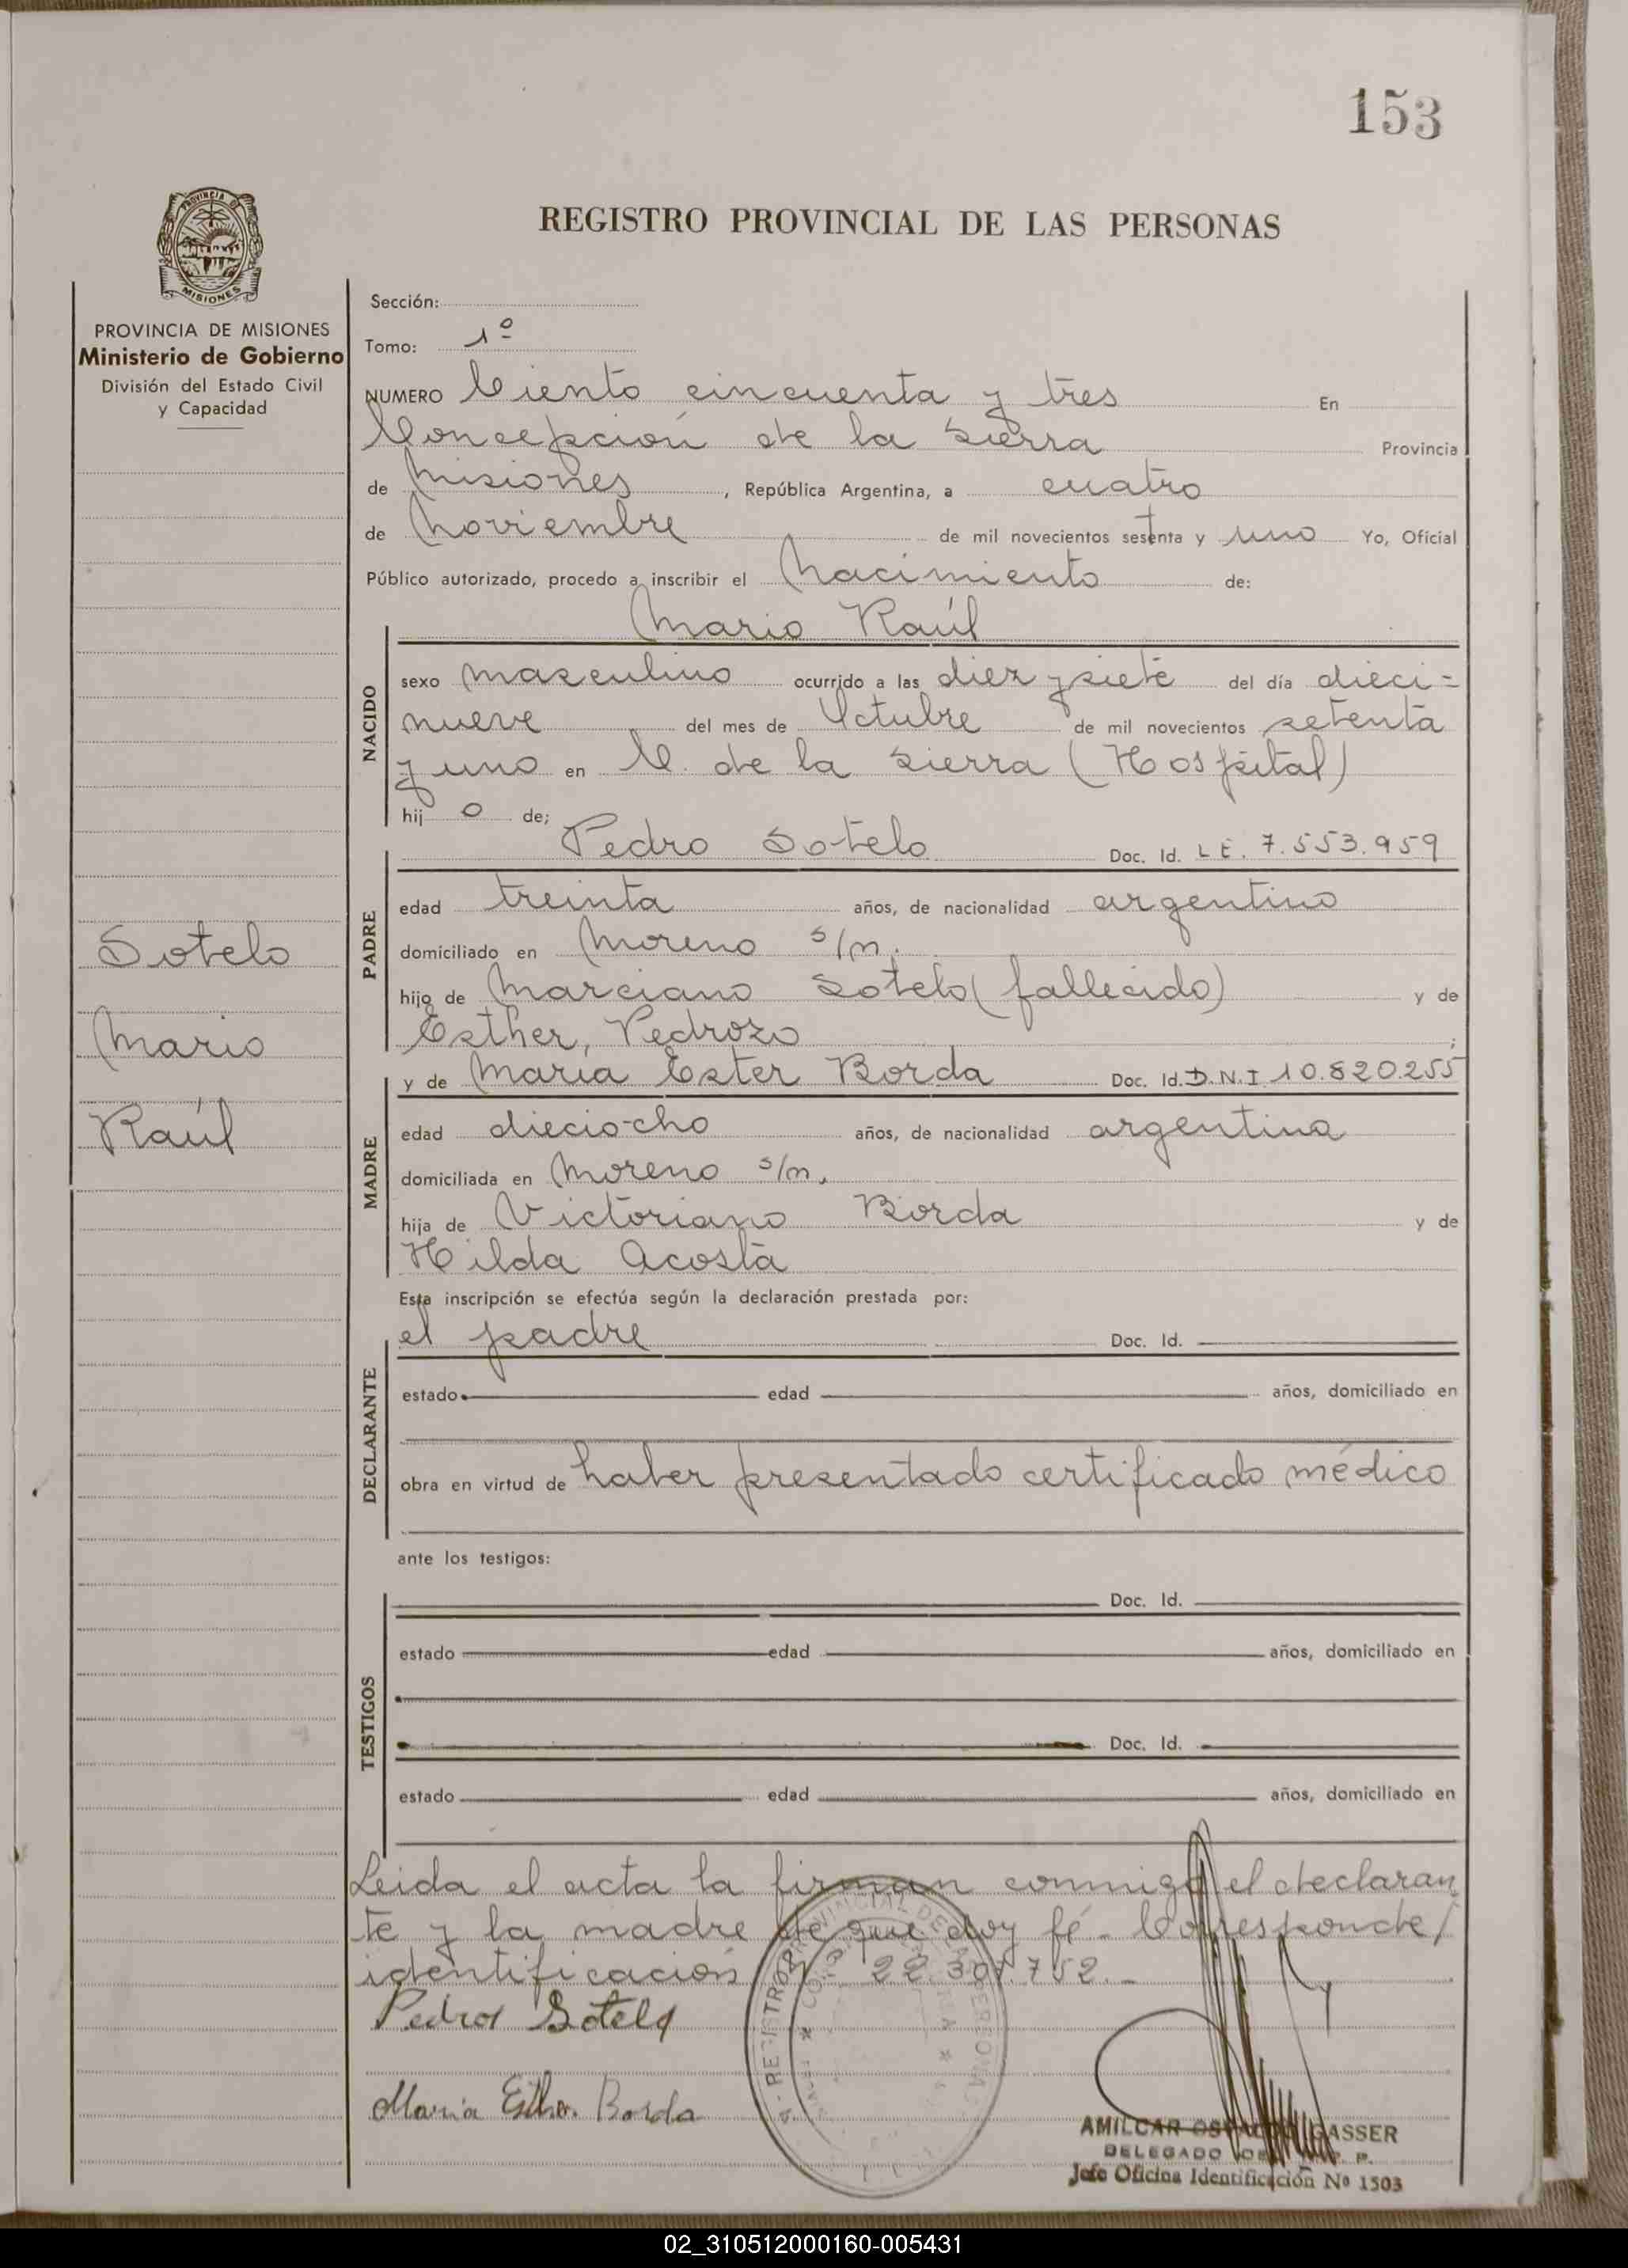 153
PROVINCIA DE
MISIONES
REGISTRO PROVINCIAL DE LAS PERSONAS
PROVINCIA DE MISIONES
Ministerio de Gobierno
División del Estado Civil
y Capacidad
Sotelo
Mario
Raúl
Sección:
Tomo: 1º
NUMERO Ciento cincuenta y tres En
Concepción de la Sierra Provincia
de Misiones, República Argentina, a cuatro
de Noviembre de mil novecientos setenta y uno Yo, Oficial
Público autorizado, procedo a inscribir el Nacimiento de:
Mario Raúl
NACIDO
sexo masculino ocurrido a las diez y siete del día dieci=
nueve del mes de Octubre de mil novecientos setenta
y uno en C. de la Sierra (Hospital)
hij o de;
Pedro Sotelo Doc. Id. L E. 7.553.959
PADRE
edad treinta años, de nacionalidad argentino
domiciliado en Moreno s/n.
hijo de Marciano Sotelo (fallecido) y de
Esther, Pedrozo ;
y de María Ester Borda Doc. Id. D.N.I 10.820.255
MADRE
edad dieciocho años, de nacionalidad argentina
domiciliada en Moreno s/n.
hija de Victoriano Borda y de
Hilda Acosta
Esta inscripción se efectúa según la declaración prestada por:
el padre Doc. Id.
DECLARANTE
estado edad años, domiciliado en
obra en virtud de haber presentado certificado médico
ante los testigos:
Doc. Id.
TESTIGOS
estado edad años, domiciliado en
Doc. Id.
estado edad años, domiciliado en
Leida el acta la firman conmigo el declaran
te y la madre de que doy fé. Corresponde/
identificación Nº 22.307.752.-
Pedro Sotelo
Maria Esther Borda
AMILCAR GASSER
DELEGADO
Jefe Oficina Identificación Nº 1503
02_310512000160-005431